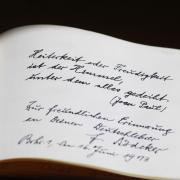 Heiterkeit oder Freudigkeit
ist der Himmel,
unter dem alles gedeiht.
(Jean Paul)
Zur freundlichen Erinnerung
an Deinen Deutschlehrer
F. Bäcker
den 16. Juni 1973